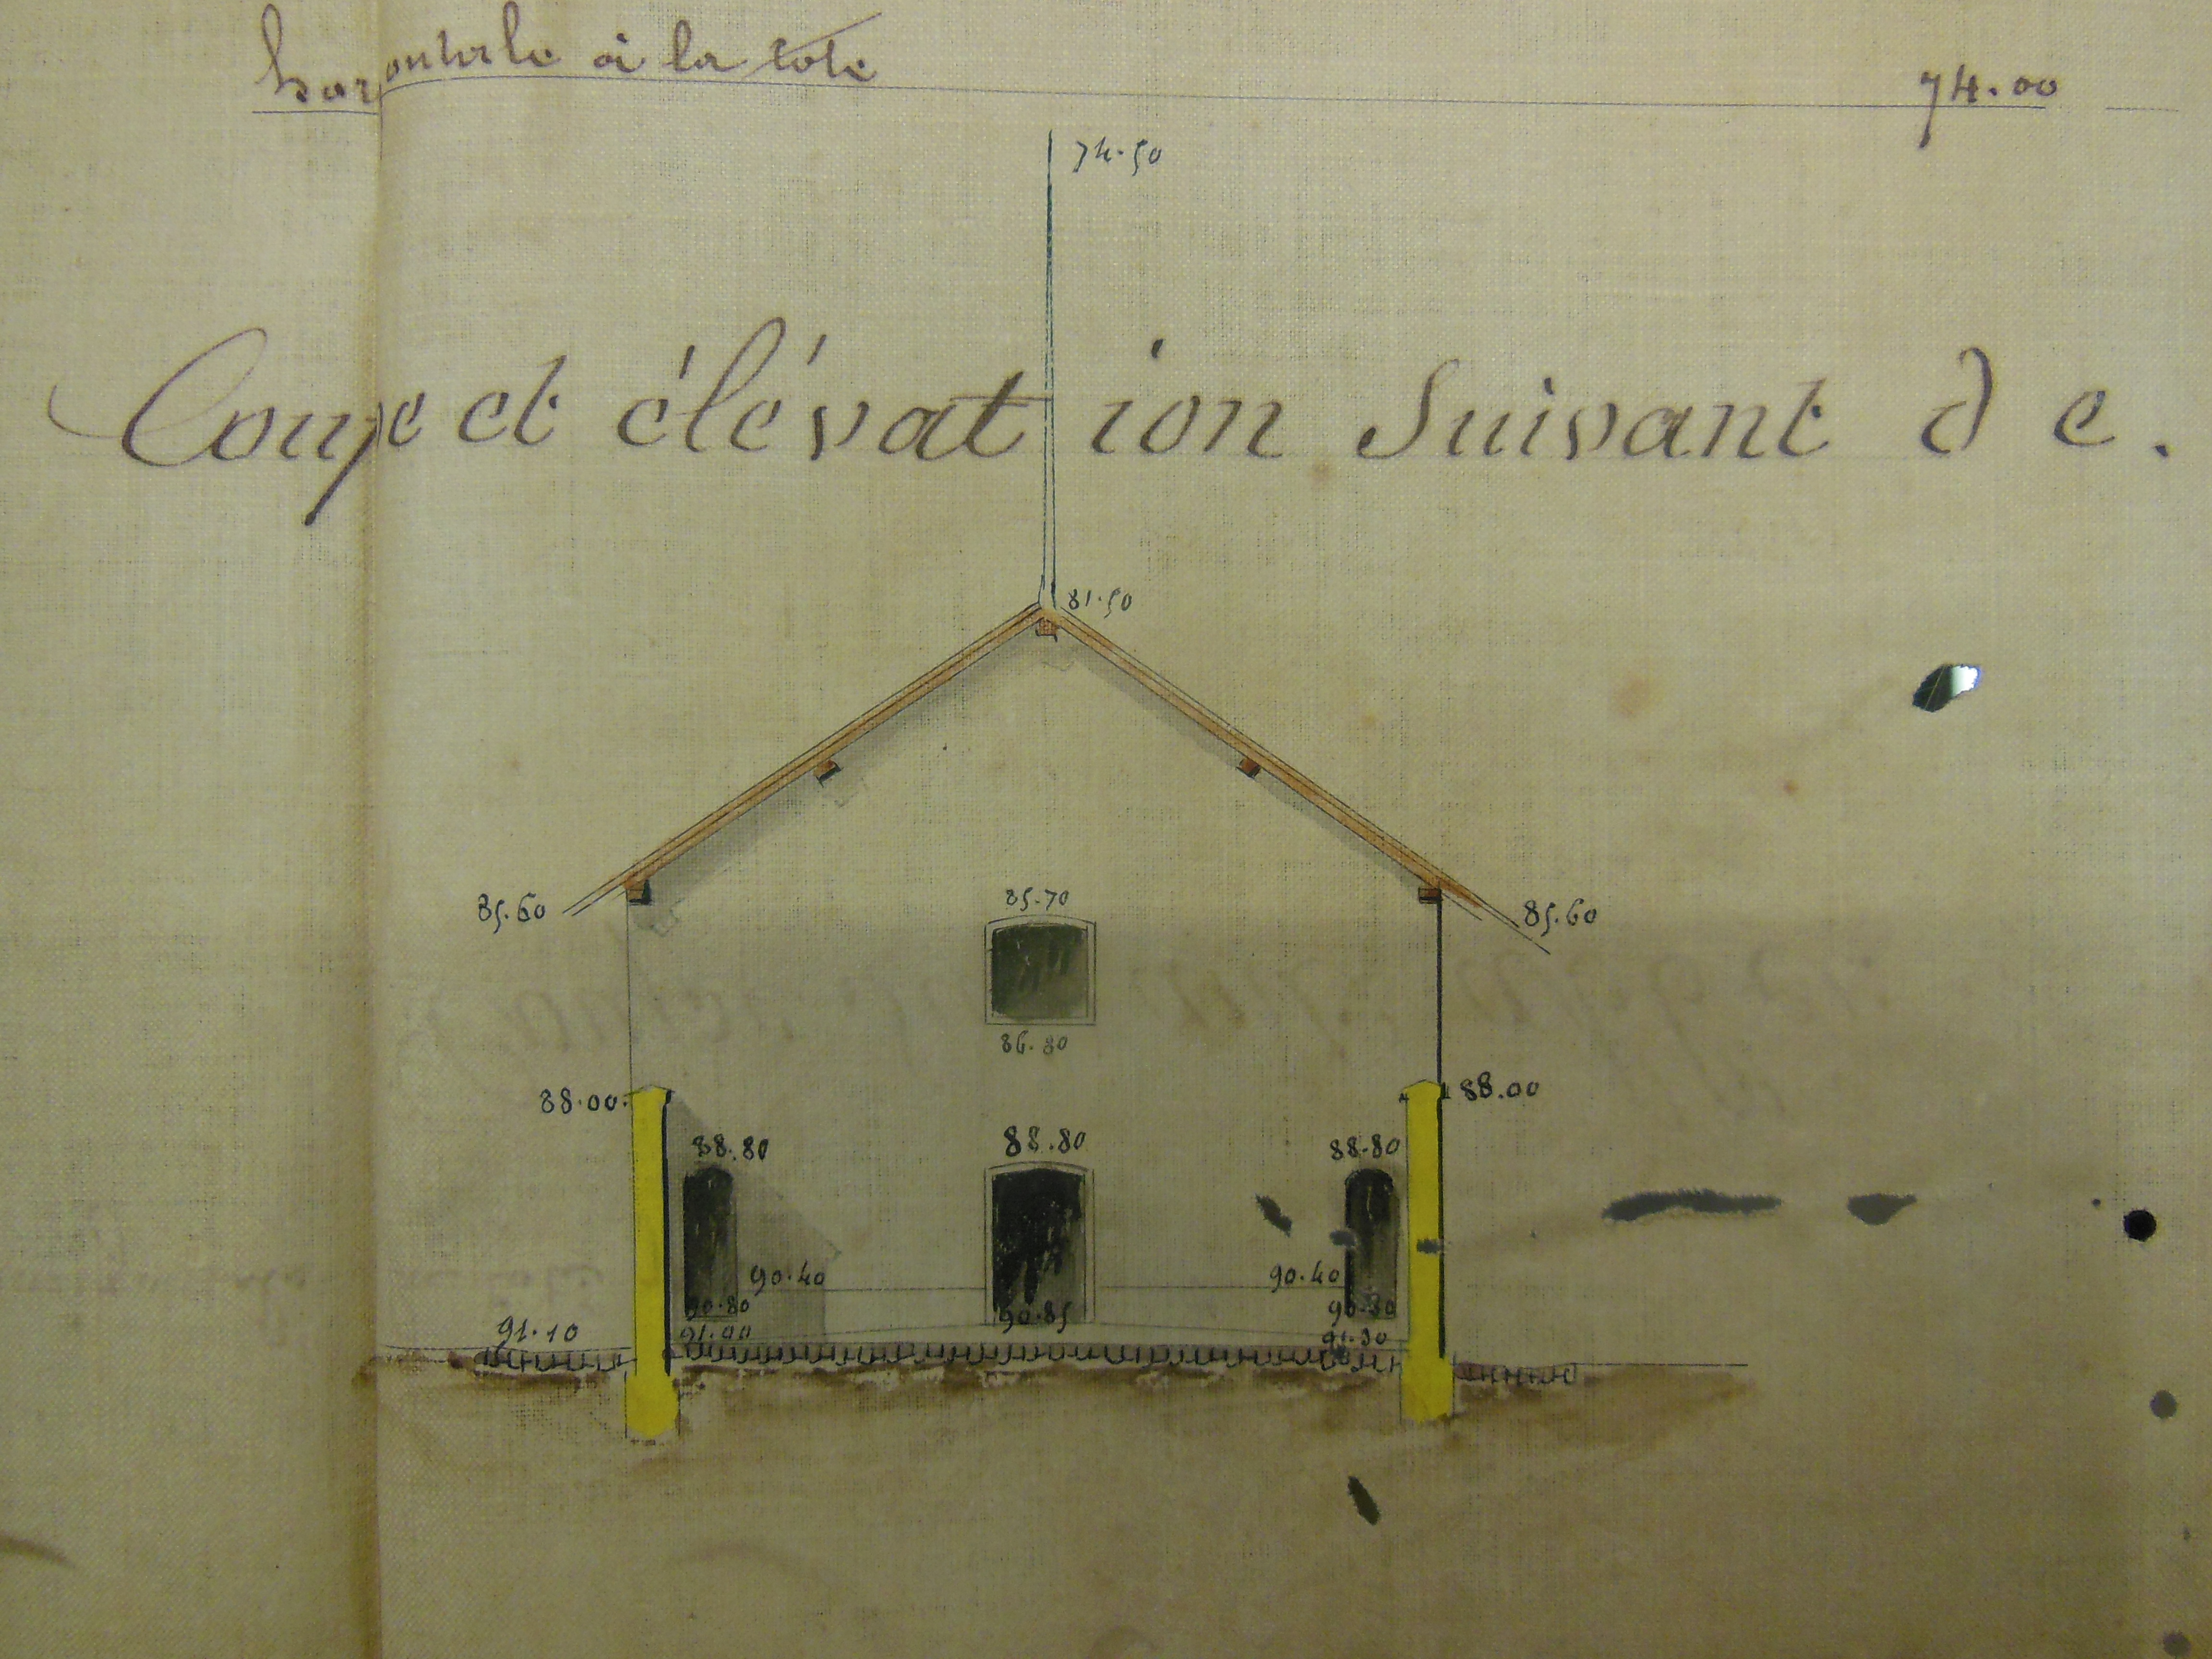 horizontale à la cote 74.00
74.50
Coupe et élévation Suivant d e.
81.50
85.70
85.60 85.60
86.80
88.00 88.00
88.80 88.80 88.80
90.40 90.40
90.80 90.85 90.80
91.10 91.00